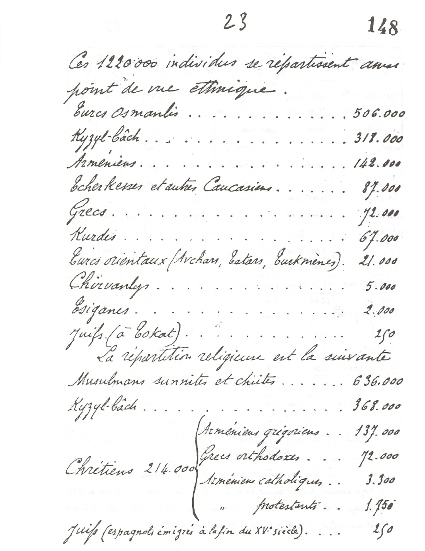 23
148
Ces 1220.000 individus se répartissent au
point de vue ethnique.
Turcs Osmanlis . . . . . . . . . . . 506.000
Kyzyl-bâch . . . . . . . . . . . . . 318.000
Arméniens . . . . . . . . . . . . . 142.000
Tcherkesses et autres Caucasiens . . . . . . 87.000
Grecs . . . . . . . . . . . . . . . 72.000
Kurdes . . . . . . . . . . . . . . 67.000
Turcs orientaux (Avchars, Tatars, Turkmènes). 21.000
Chirvanlys . . . . . . . . . . . . 5.000
Tsiganes . . . . . . . . . . . . . 2.000
Juifs (à Tokat) . . . . . . . . . . . 250
La répartition religieuse est la suivante
Musulmans sunnites et chiites . . . . . . 636.000
Kyzyl-bâch . . . . . . . . . . . . . 368.000
Chrétiens 214.000
Arméniens grégoriens . . . 137.000
Grecs orthodoxes . . . 72.000
Arméniens catholiques . . 3.300
" protestants . . 1.750
Juifs (espagnols émigrés à la fin du XVe siècle). . . . 250